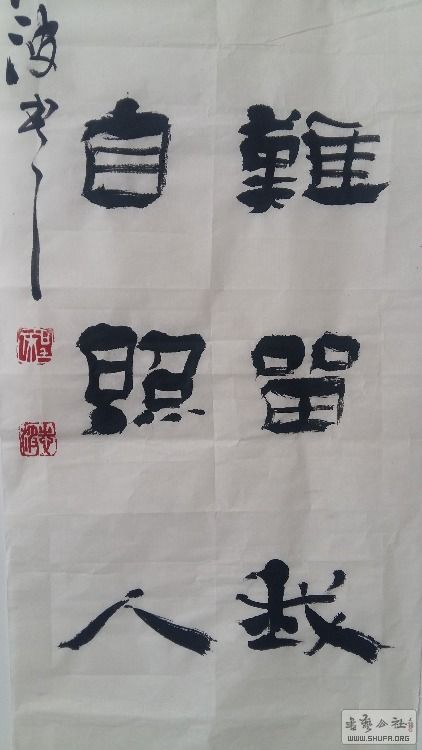 難留我
自照人
波书
書藝公社
WWW.SHUFA.ORG